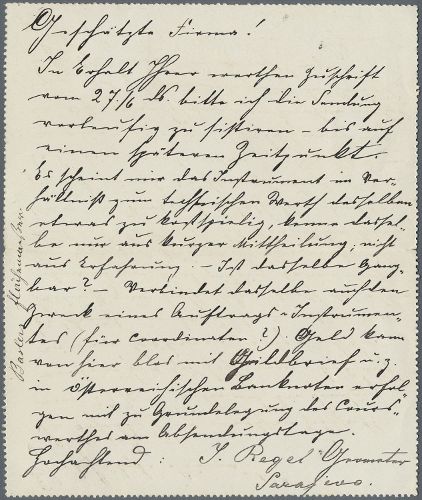 Geschätzte Firma!
In Erhalt Ihrer werthen Zuschrift
vom 27/6 ds. bitte ich die Sendung
verleufig zu sistiren – bis auf
einen späteren Zeitpunkt.
Es scheint mir das Instrument im Ver-
hältniß zum techtrischen Werth desselben
etwas zu kostspielig, kenne dassel-
be nur aus kurzer Mittheilung, nicht
aus Erfahrung. – Ist dasselbe gang-
bar? – Verbindet dasselbe auch den
Zweck eines Auftrags-Instrumen-
tes (für Coordinaten?). Geld kann
von hier blos mit Geldbrief u. z.
in österreichischen Banknoten erfol-
gen mit zu Grundelegung des Cours-
werthes am Absendungstage.
Hochachtend: J. Regel Geometer
Sarajevo.